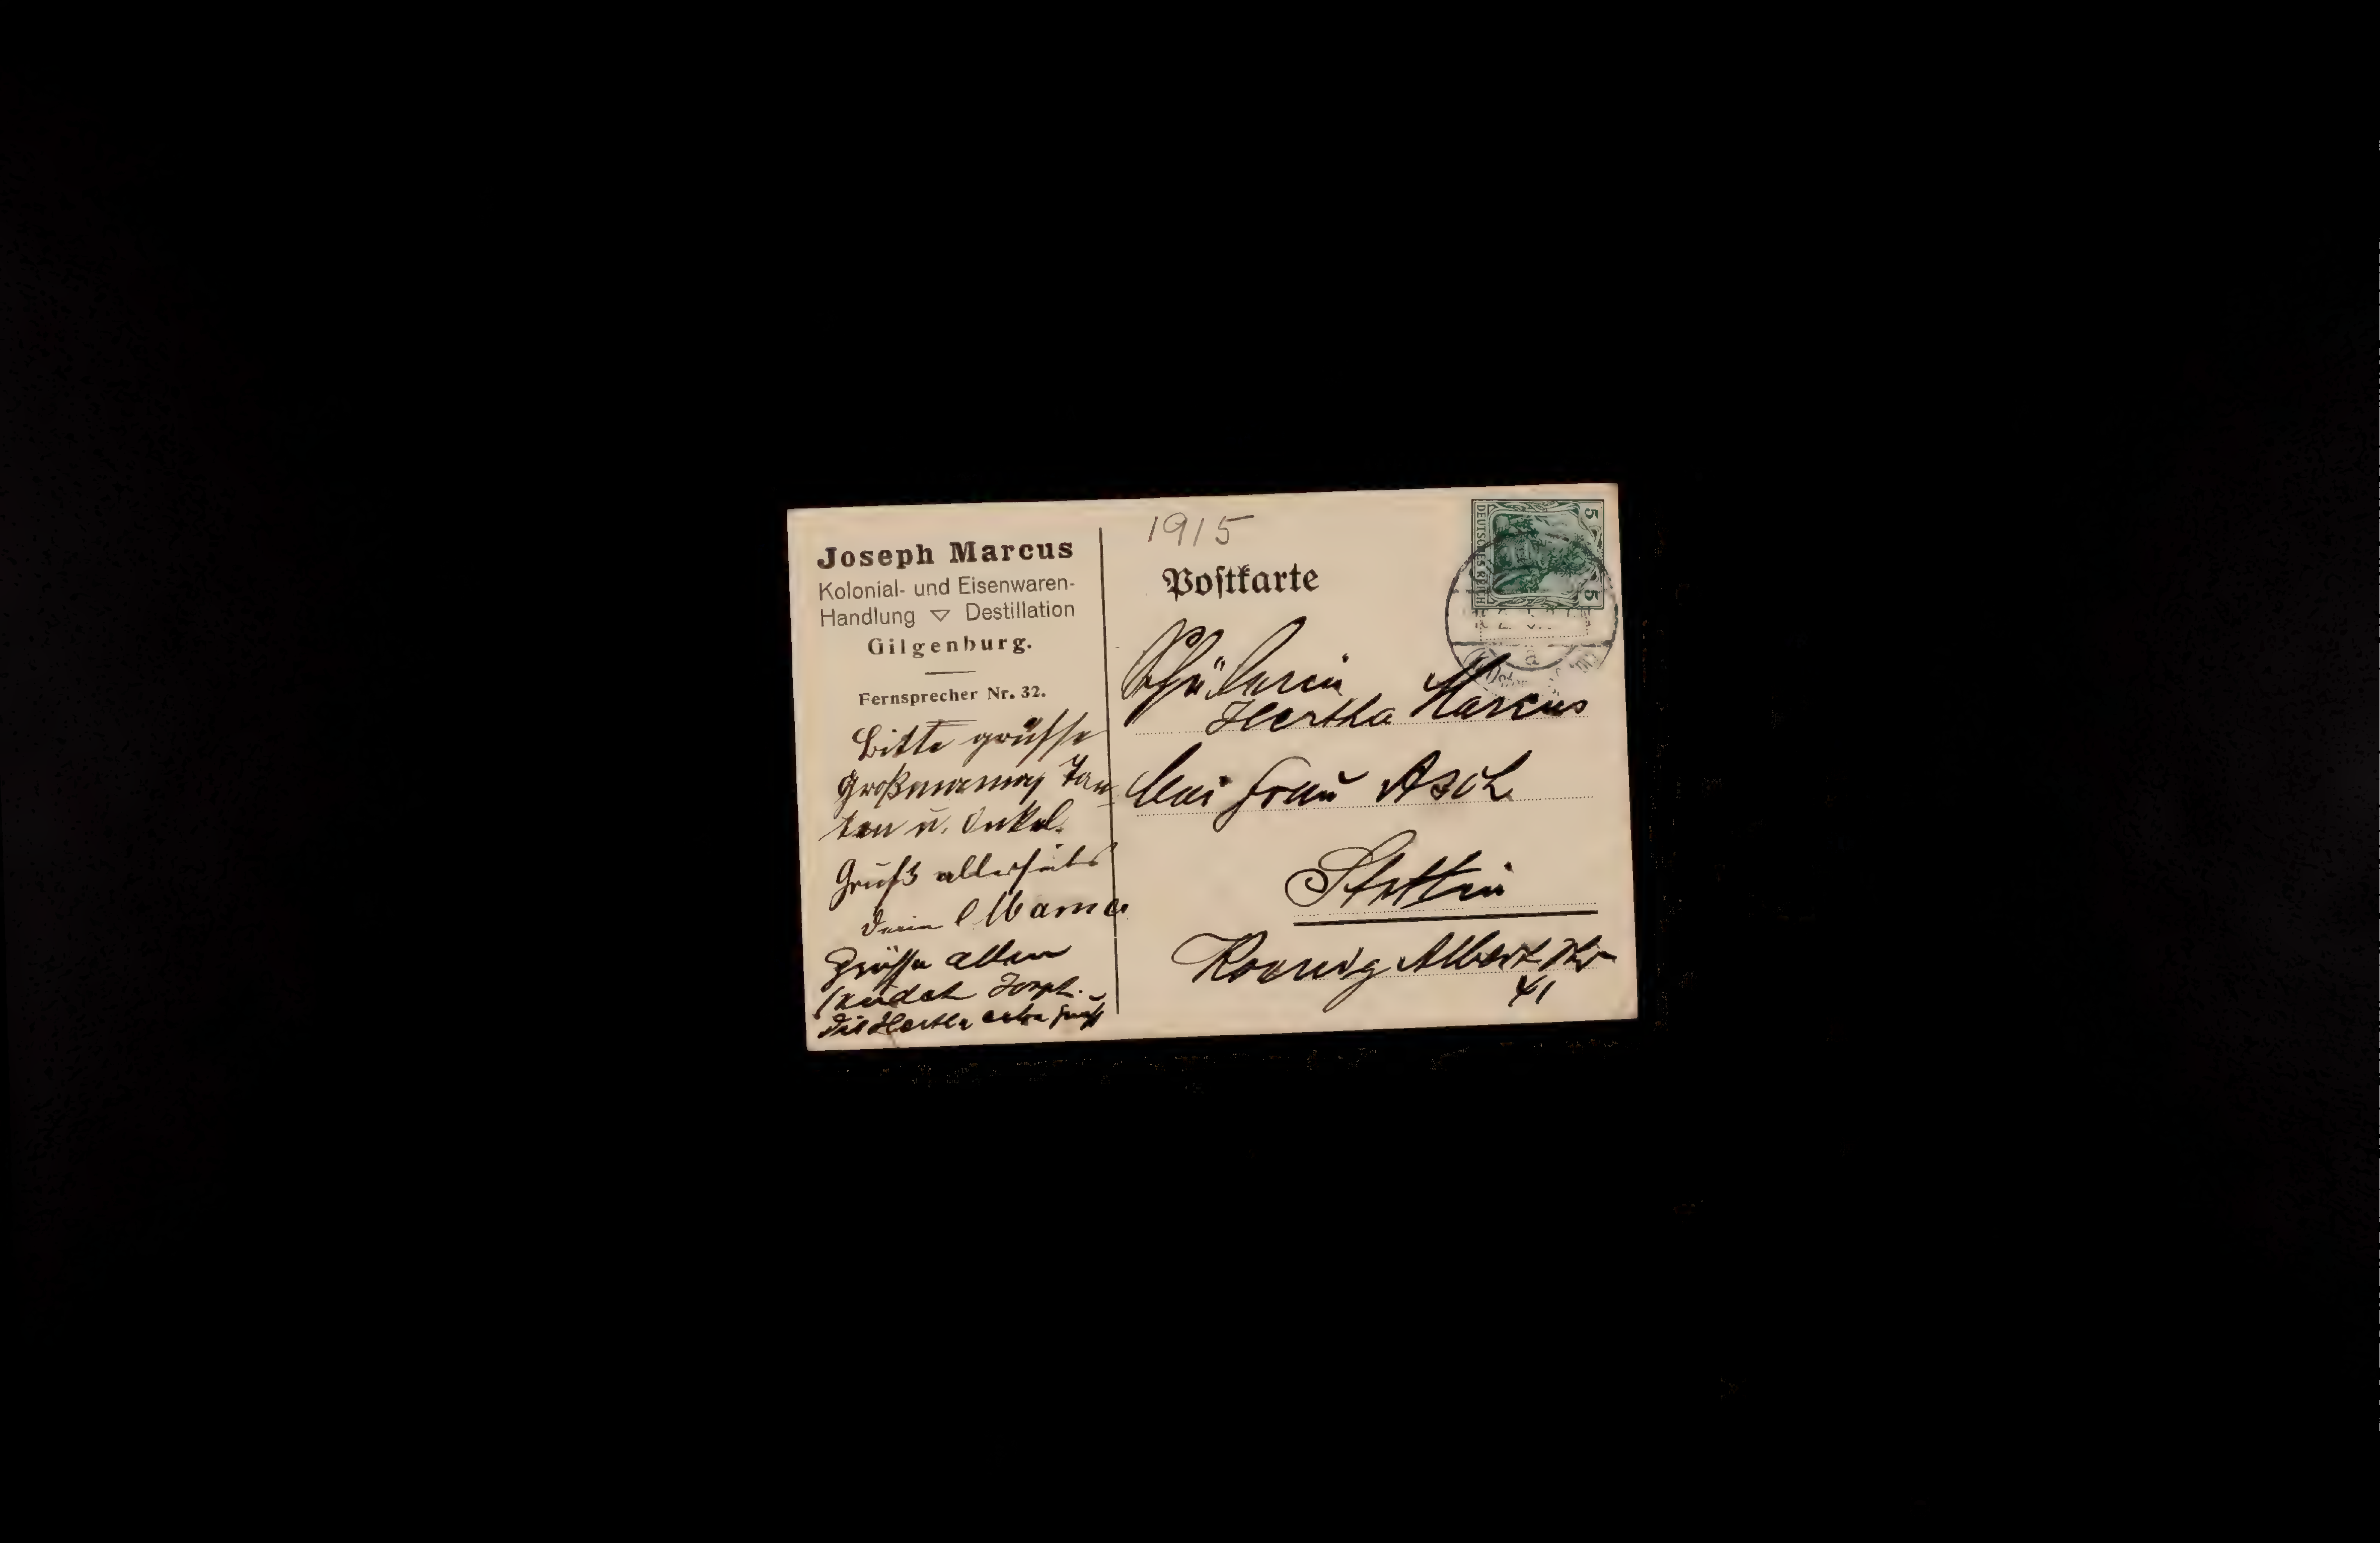 Joseph Marcus
Kolonial- und Eisenwaren-
Handlung ▽ Destillation
Gilgenburg.
Fernsprecher Nr. 32.
Bitte grüsse
Großmama, Tan-
ten u. Onkel.
Gruß allerseits
Deine Mama
Grüsse allen
sendet
Dir Hertha extra Gruß
1915
Postkarte
DEUTSCHES REICH
5
5
a
Schülerin
Hertha Marcus
bei Frau Asch
Stettin
Koenig Albert Str
41